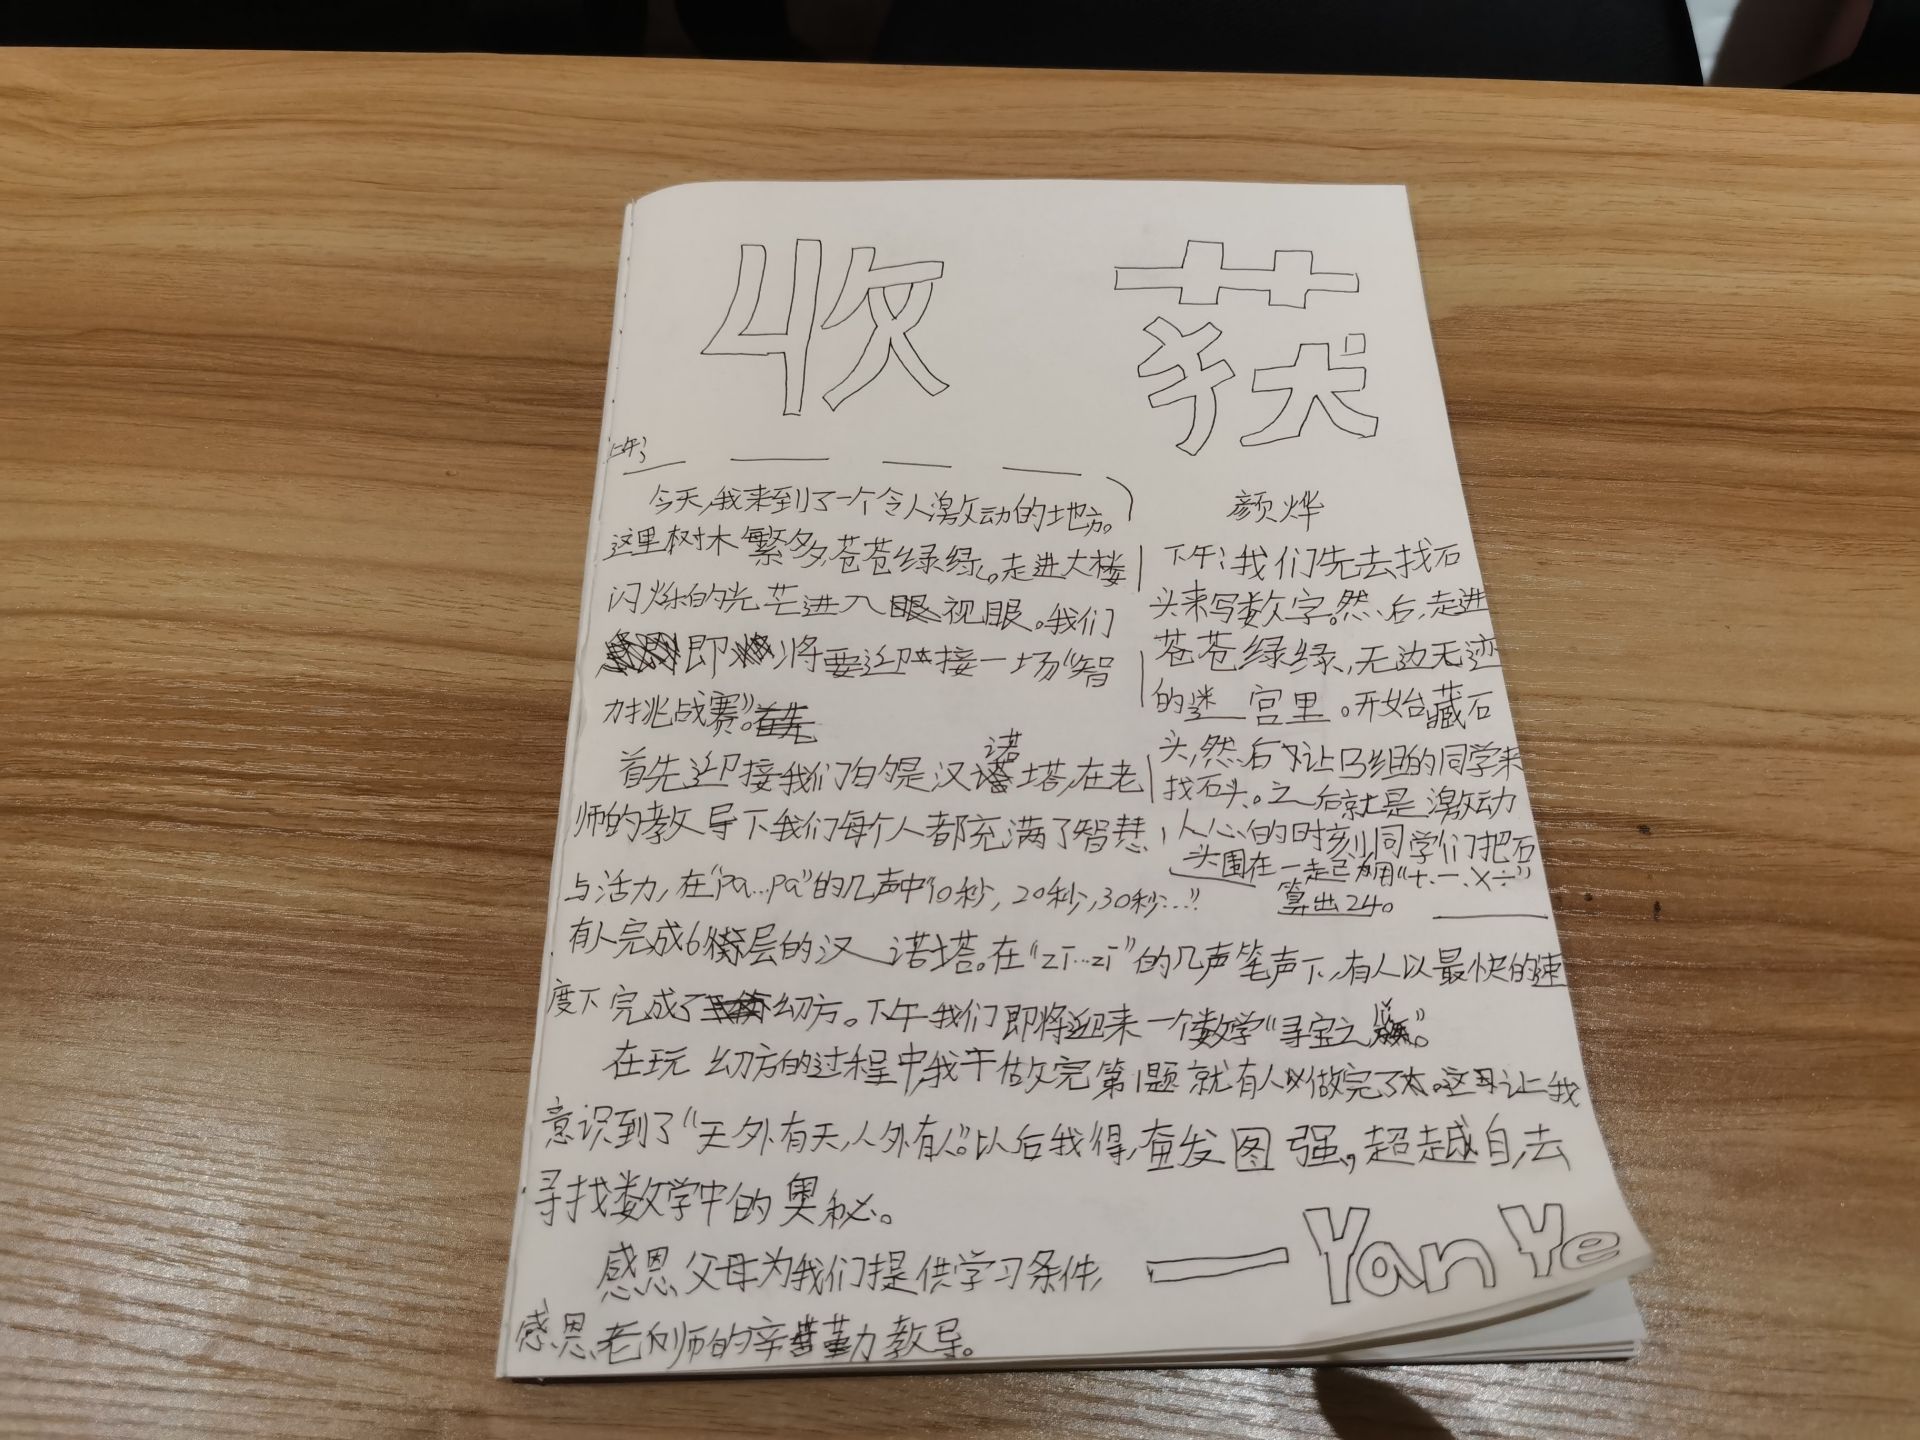 收 获
上午:
今天,我来到了一个令人激动的地方。
这里树木繁多,苍苍绿绿。走进大楼
闪烁的光芒进入眼视眼。我们
即将要迎接一场“智
力挑战赛”。
首先迎接我们的是汉诺塔,在老
师的教导下我们每个人都充满了智慧
与活力,在“pa…pa”的几声中“10秒,20秒,30秒…”
有人完成6层的汉诺塔。在“zī…zī”的几声笔声下,有人以最快的速
度下完成了幻方。下午我们即将迎来一个数学“寻宝之旅”。
在玩幻方的过程中,我干做完第1题就有人做完了。这让我
意识到了“天外有天,人外有人”。以后我得,奋发图强,超越自,去
寻找数学中的奥秘。
感恩父母为我们提供学习条件,
感恩老师的辛勤教导。
颜烨
下午:我们先去找石
头来写数字。然后,走进
苍苍绿绿,无边无迹
的迷宫里。开始藏石
头,然后让B组的同学来
找石头。之后就是激动
人心的时刻同学们把石
头围在一起用“+、一、×÷”
算出24。
— Yan Ye